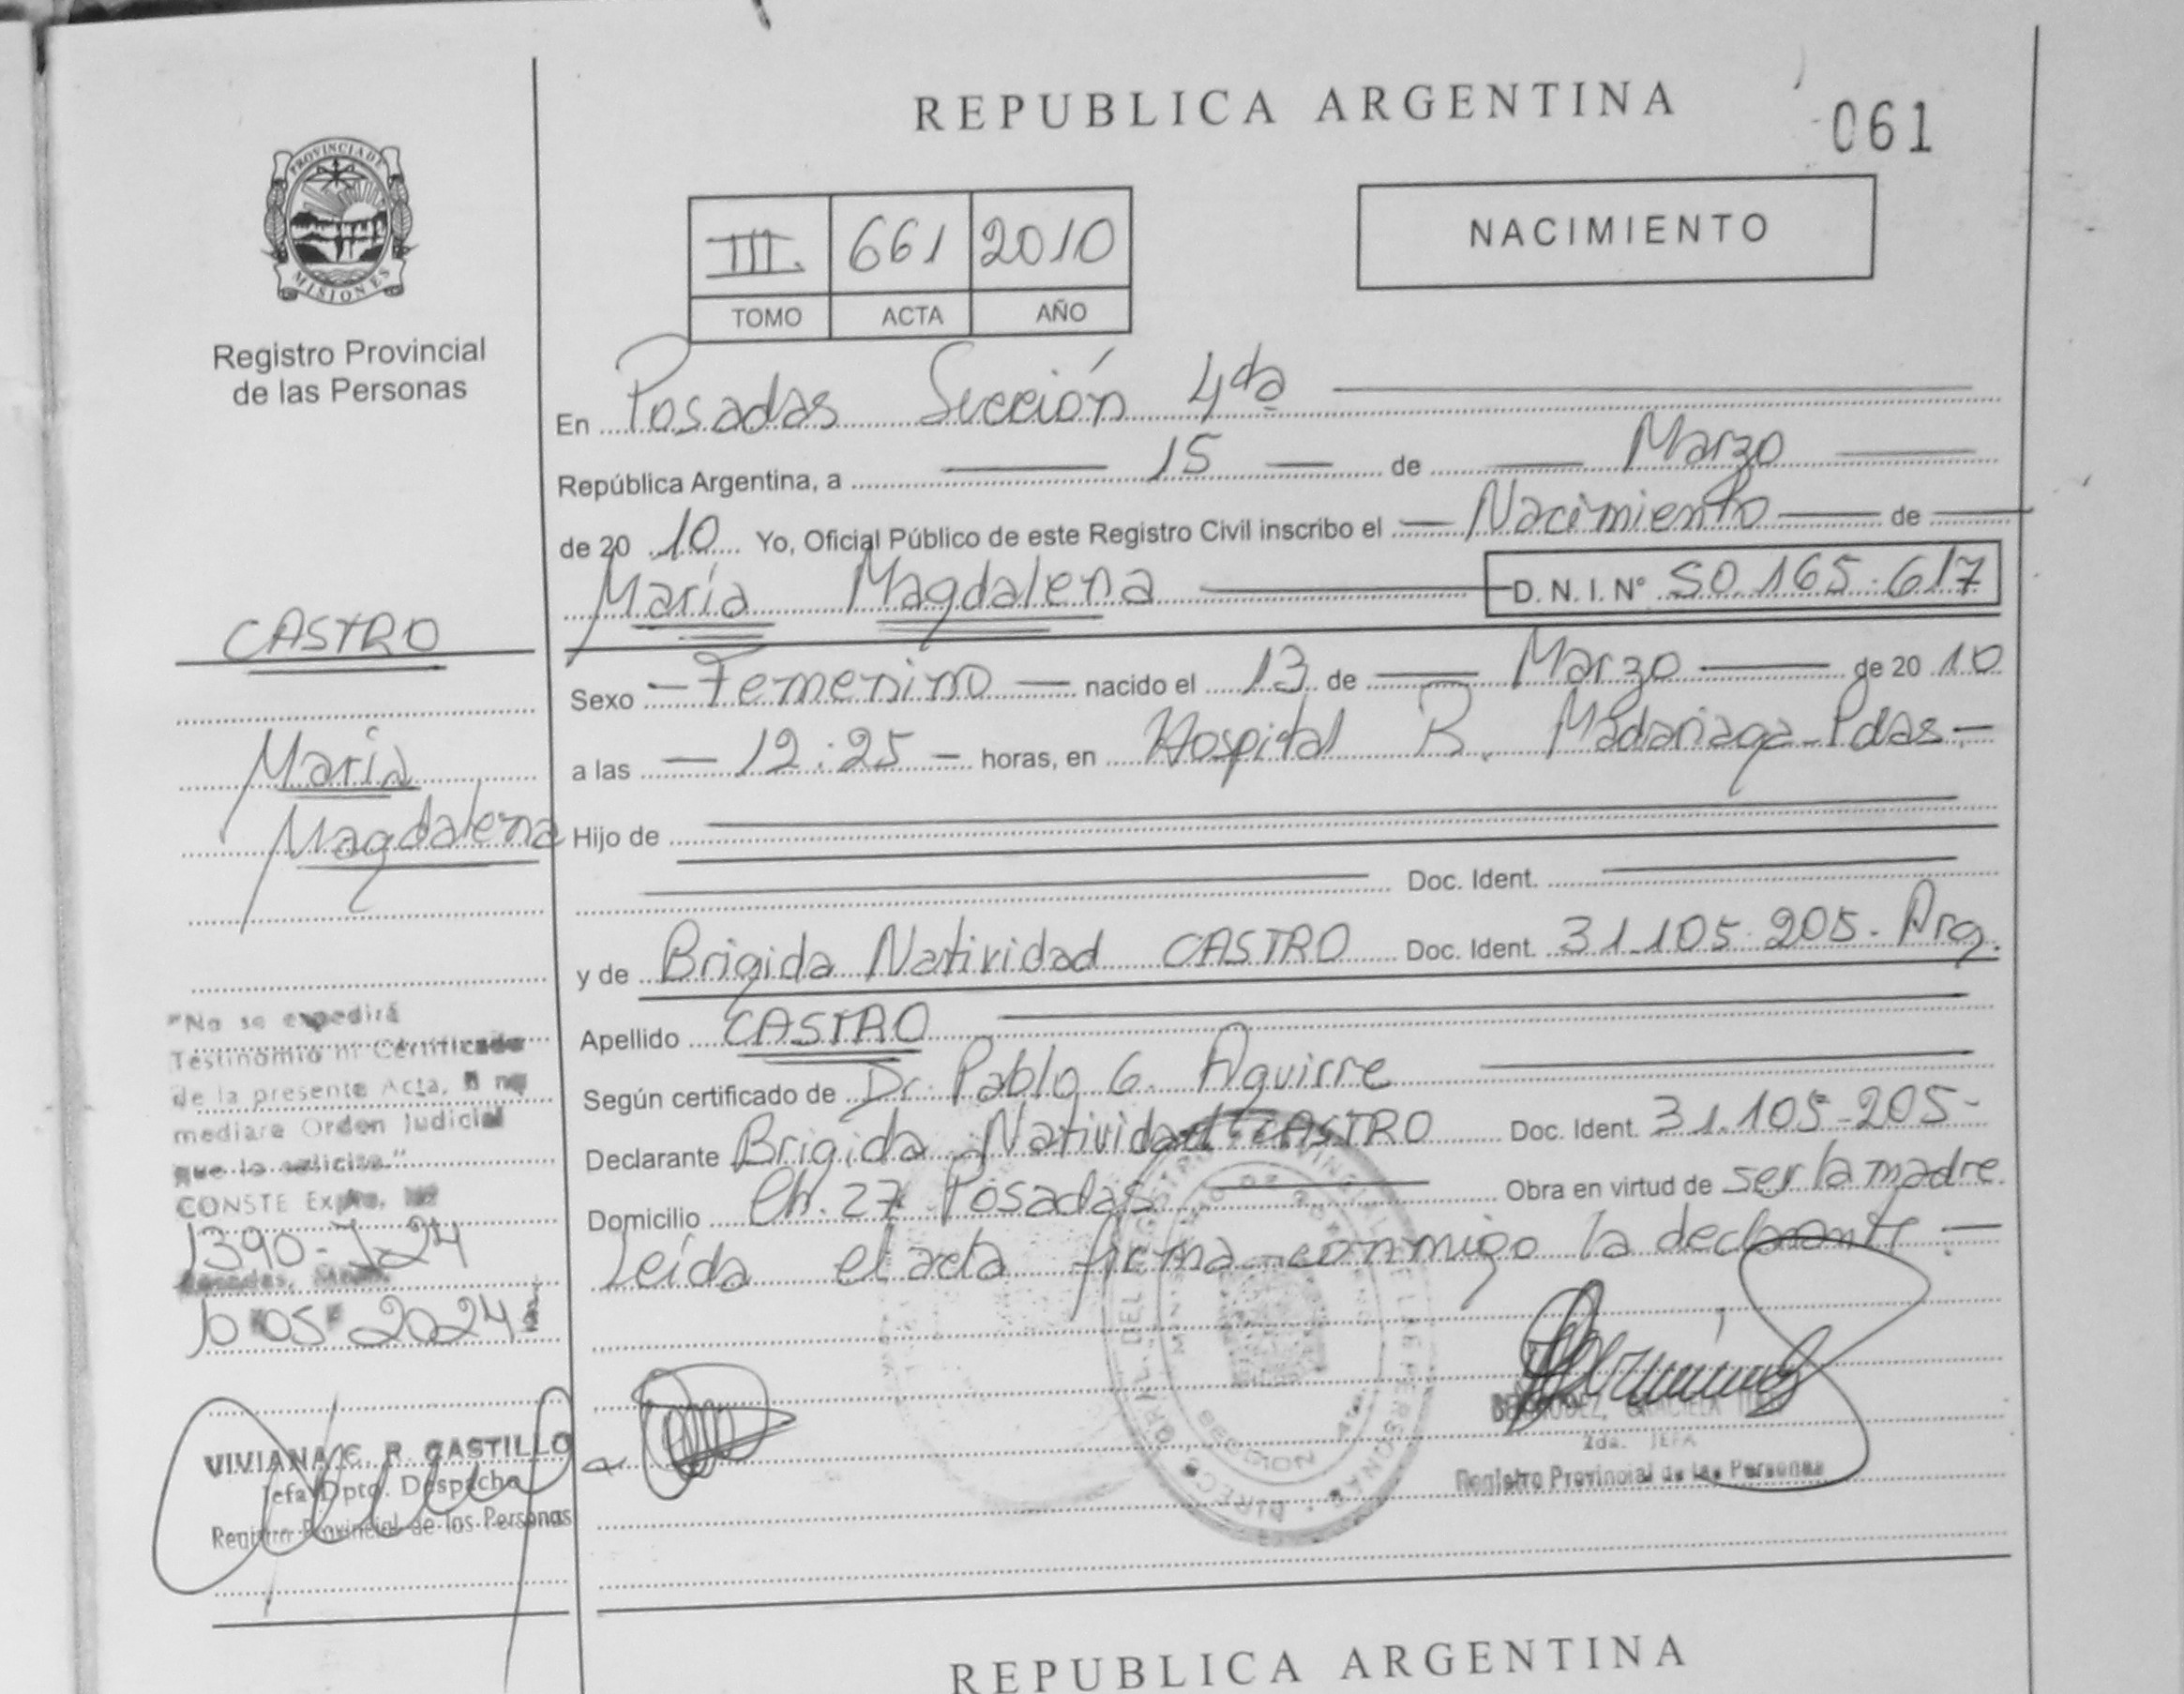 REPUBLICA ARGENTINA
061
PROVINCIA DE
MISIONES
Registro Provincial
de las Personas
III. 661 2010
TOMO ACTA AÑO
NACIMIENTO
En Posadas Sección 4da
República Argentina, a 15 de Marzo
de 2010 Yo, Oficial Público de este Registro Civil inscribo el Nacimiento de
María Magdalena D. N. I. N° 50.165.617
Sexo Femenino nacido el 13 de Marzo de 2010
a las 12:25 horas, en Hospital R. Madariaga-Pdas-
Hijo de
Doc. Ident.
y de Brigida Natividad CASTRO Doc. Ident. 31.105.205.-Arg.
Apellido CASTRO
Según certificado de Dr. Pablo G. Aguirre
Declarante Brigida Natividad CASTRO Doc. Ident. 31.105-205-
Domicilio Ch. 27 Posadas Obra en virtud de ser la madre
Leída el acta firma conmigo la declarante.-
CASTRO
María
Magdalena
"No se expedirá
Testimonio ni Certificado
de la presente Acta, si no
mediare Orden Judicial
que lo solicite."
CONSTE Expte. Nº
1390-J-24
Posadas, Mnes.
10 05 2024
VIVIANA C. R. CASTILLO
Jefa Dpto. Despacho
Registro Provincial de las Personas
BERMUDEZ, GRACIELA
2da. JEFA
Registro Provincial de las Personas
REPUBLICA ARGENTINA